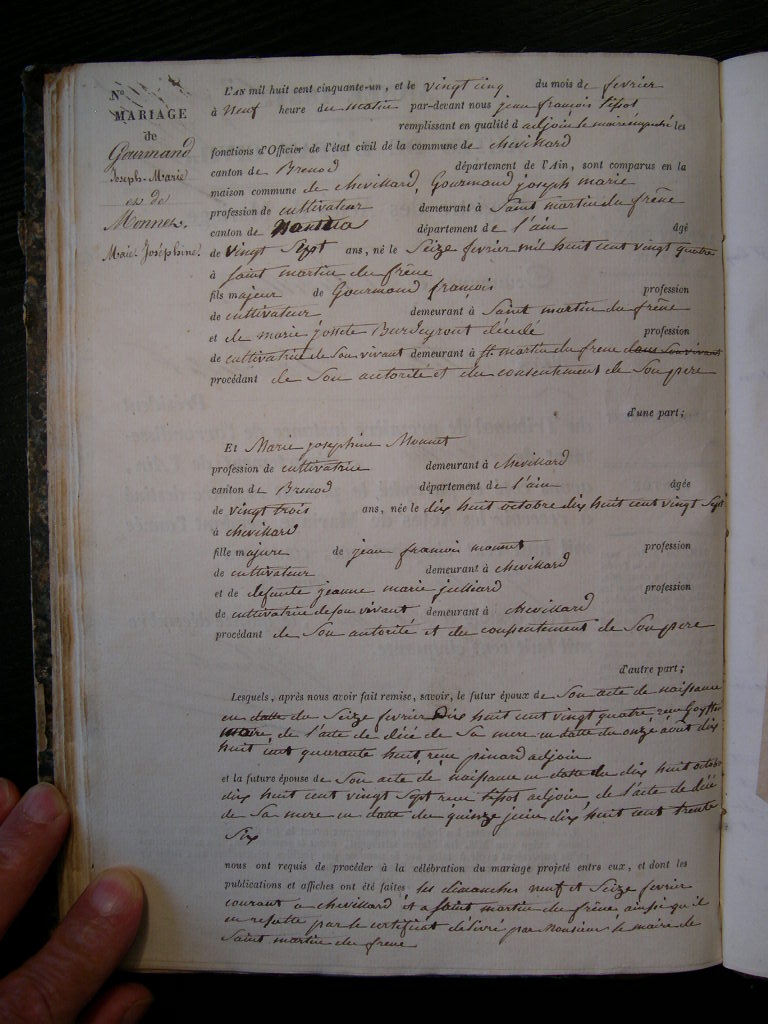 N°
MARIAGE
de
Gourmand
Joseph-Marie
et de
Monnet
Marie Joséphine
L'AN mil huit cent cinquante-un, et le vingt cinq du mois de fevrier
à Neuf heure du matin par-devant nous jean françois tissot
remplissant en qualité d adjoin le maire émpeché les
fonctions d'Officier de l'état civil de la commune de chevillard
canton de Brenod département de l'Ain, sont comparus en la
maison commune de chevillard, Gourmand joseph marie
profession de cultivateur demeurant à Saint martin du frêne
canton de Nantua département de l'ain âgé
de vingt Sept ans, né le Seize fevrier mil huit cent vingt quatre
à saint martin du frêne
fils majeur de Gourmand françois profession
de cultivateur demeurant à Saint martin du frêne
et de marie josette décédé profession
de cultivatrice de son vivant demeurant à st. martin du frene dans son vivant
procédant de Son autorité et du consentement de Son pere
d'une part;
Et Marie josephine Monnet
profession de cultivatrice demeurant à chevillard
canton de Brenod département de l'ain âgée
de vingt trois ans, née le dix huit octobre dix huit cent vingt Sept
à chevillard
fille majeure de jean francois monnet profession
de cultivateur demeurant à chevillard
et de defunte jeanne marie julliard profession
de cultivatrice de son vivant demeurant à chevillard
procédant de Son autorité et du consentement de Son pere
d'autre part;
Lesquels, après nous avoir fait remise, savoir, le futur époux de Son acte de naissance
en datte du Seize fevrier dix huit cent vingt quatre reçu
maire, de l'acte de décé de Sa mere en datte du onze août dix
huit cent quarante huit, reçu pinard adjoin
et la future épouse de Son acte de naissance en datte du dix huit octobre
dix huit cent vingt Sept reçu tissot adjoin de l'acte de décé
de Sa mere en datte du quinze juin dix huit cent trente
Six
nous ont requis de procéder à la célébration du mariage projeté entre eux, et dont les
publications et affiches ont été faites les dimanches neuf et Seize fevrier
courant a chevillard et a saint martin du frêne ainsi qu'il
en resulte par le certificat délivré par Monsieur le maire de
Saint martin du frene